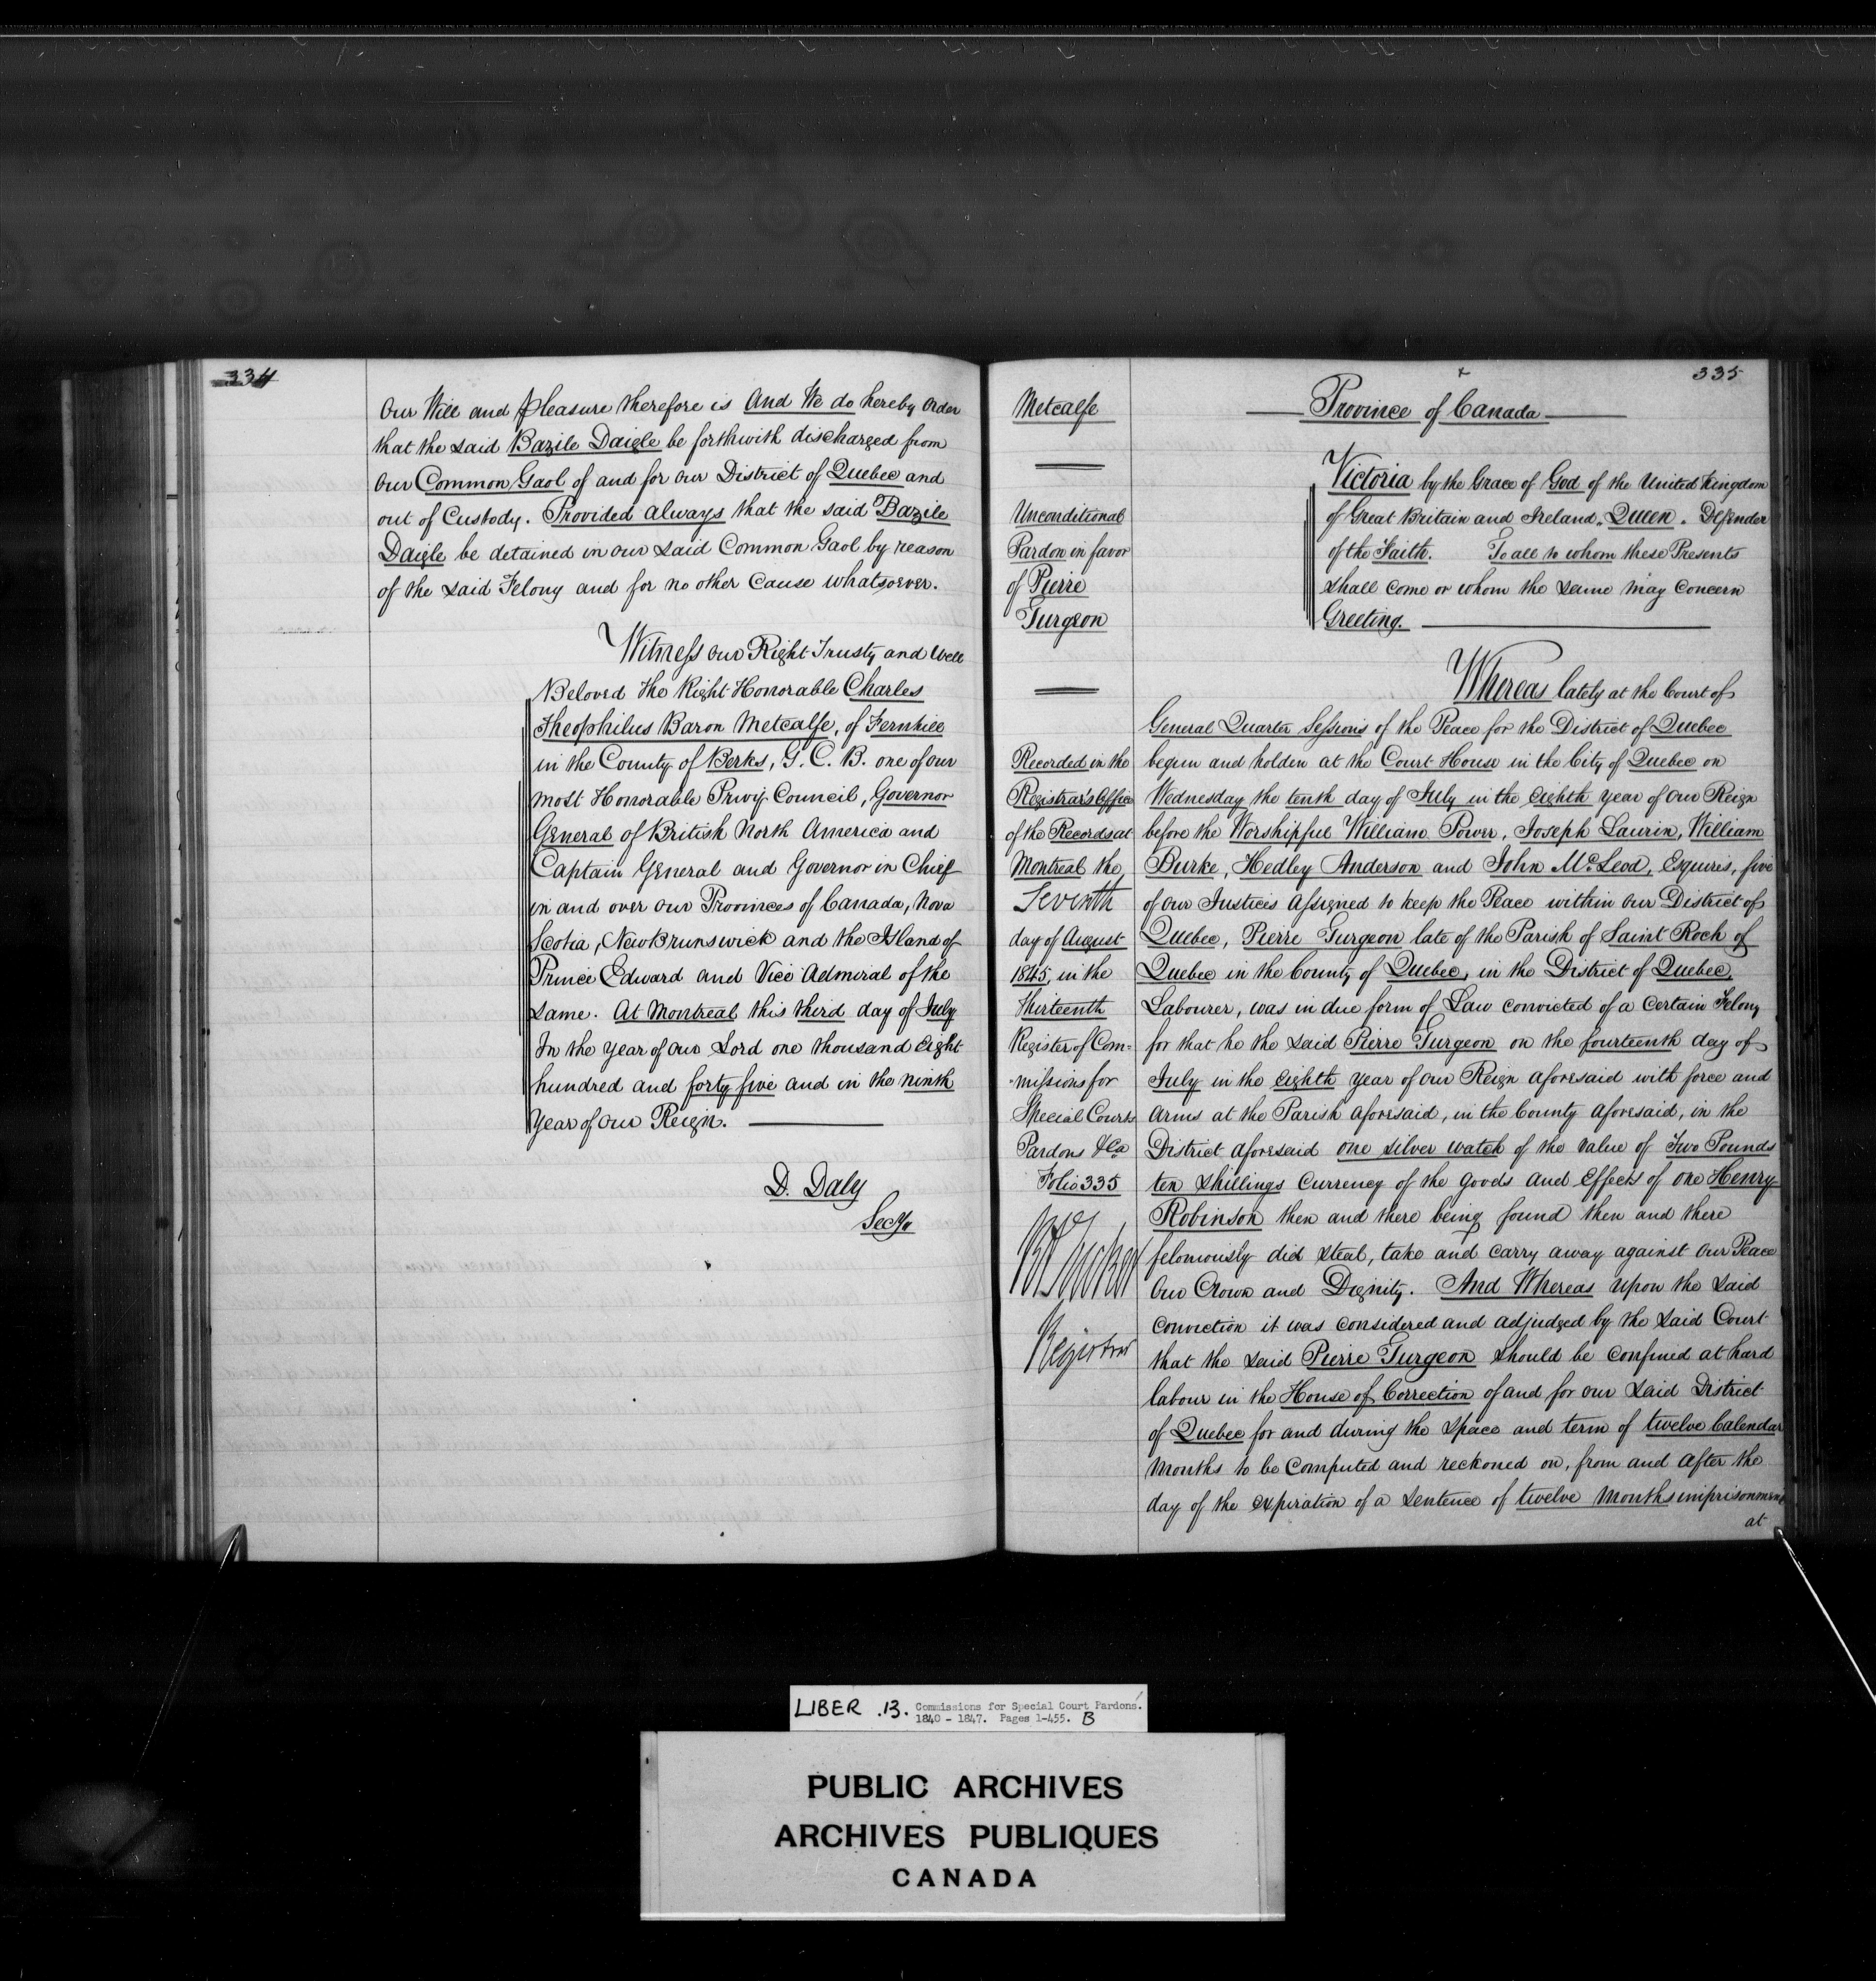 334
Our Will and pleasure therefore is And We do hereby Order
that the said Bazile Daigle be forthwith discharged from
Our Common Gaol of and for our District of Quebec and
out of Custody. Provided always that the said Bazile
Daigle be detained in our said Common Gaol by reason
of the said Felony and for no other Cause whatsoever.
Witness our Right Trusty and Well
Beloved The Right Honorable Charles
Theophilus Baron Metcalfe, of Fernhill
in the County of Berks, G. C. B. one of our
most Honorable Privy Council, Governor
General of British North America and
Captain General and Governor in Chief
in and over our Provinces of Canada, Nova
Scotia, New Brunswick and the Island of
Prince Edward and Vice Admiral of the
same. At Montreal this third day of July
In the year of our Lord one thousand Eight
hundred and forty five and in the ninth
year of our Reign.
D. Daly
Secy
335
Metcalfe
Unconditional
Pardon in favor
of Pierre
Turgeon
Recorded in the
Registrar's Office
of the Records at
Montreal the
Seventh
day of August
1845, in the
thirteenth
Register of Com=
missions for
Special Courts
Pardons &ca
Folio 335
Registrar
Province of Canada
Victoria by the Grace of God of the United Kingdom
of Great Britain and Ireland, Queen. Defender
of the Faith. To all to whom these Presents
shall come or whom the same may concern
Greeting.
Whereas lately at the Court of
General Quarter Sessions of the Peace for the District of Quebec
begun and holden at the Court House in the City of Quebec on
Wednesday the tenth day of July in the eighth year of our Reign
before the Worshipful William Power, Joseph Laurin, William
Burke, Hedley Anderson and John McLeod, Esquires, five
of our Justices assigned to keep the Peace within our District of
Quebec, Pierre Turgeon late of the Parish of Saint Roch of
Quebec in the County of Quebec, in the District of Quebec,
Labourer, was in due form of Law convicted of a certain Felony
for that he the said Pierre Turgeon on the fourteenth day of
July in the eighth year of our Reign aforesaid with force and
arms at the Parish aforesaid, in the County aforesaid, in the
District aforesaid one silver watch of the value of Two Pounds
ten shillings Currency of the goods and effects of one Henry
Robinson then and there being found then and there
feloniously did steal, take and carry away against our Peace
Our Crown and Dignity. And Whereas upon the said
conviction it was considered and adjudged by the said Court
that the said Pierre Turgeon should be confined at hard
labour in the House of Correction of and for our said District
of Quebec for and during the space and term of twelve Calendar
Months to be computed and reckoned on, from and after the
day of the expiration of a sentence of twelve Months imprisonment
at
LIBER .13. Commissions for Special Court Pardons.
1840 - 1847. Pages 1-455. B
PUBLIC ARCHIVES
ARCHIVES PUBLIQUES
CANADA